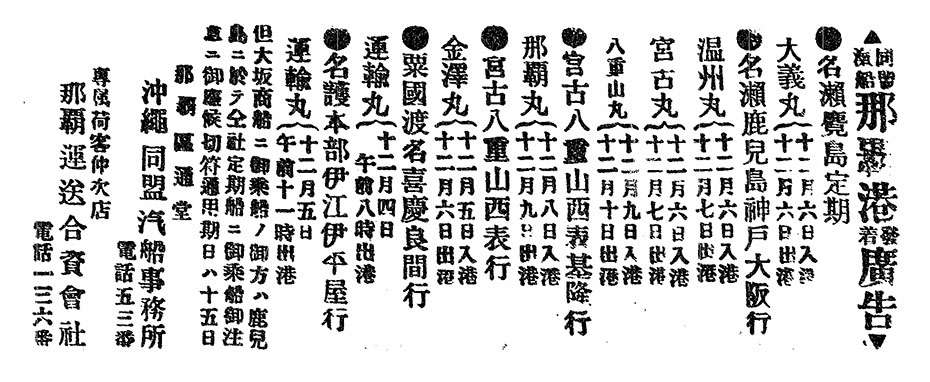 ▲同盟汽船那覇港發着廣告▼
●名瀬鹿兒島定期
大義丸 十二月六日入港
十二月六日出港
●名瀬鹿兒島神戸大阪行
温州丸 十二月六日入港
十二月七日出港
宮古丸 十二月六日入港
十二月七日出港
八重山丸 十二月九日入港
十二月十日出港
●宮古八重山西表基隆行
那覇丸 十二月八日入港
十二月九日出港
●宮古八重山西表行
金澤丸 十二月五日入港
十二月六日出港
●粟國渡名喜慶良間行
運輸丸 十二月四日
午前八時出港
●名護本部伊江伊平屋行
運輸丸 十二月五日
午前十一時出港
但大坂商船ニ御乘船ノ御方ハ鹿兒
島ニ於テ仝社定期船ニ御乘船御注
意ニ御座候切符通用期日ハ十五日
那覇區通堂
沖繩同盟汽船事務所
電話五三番
專属荷客仲次店
那覇運送合資會社
電話一三六番